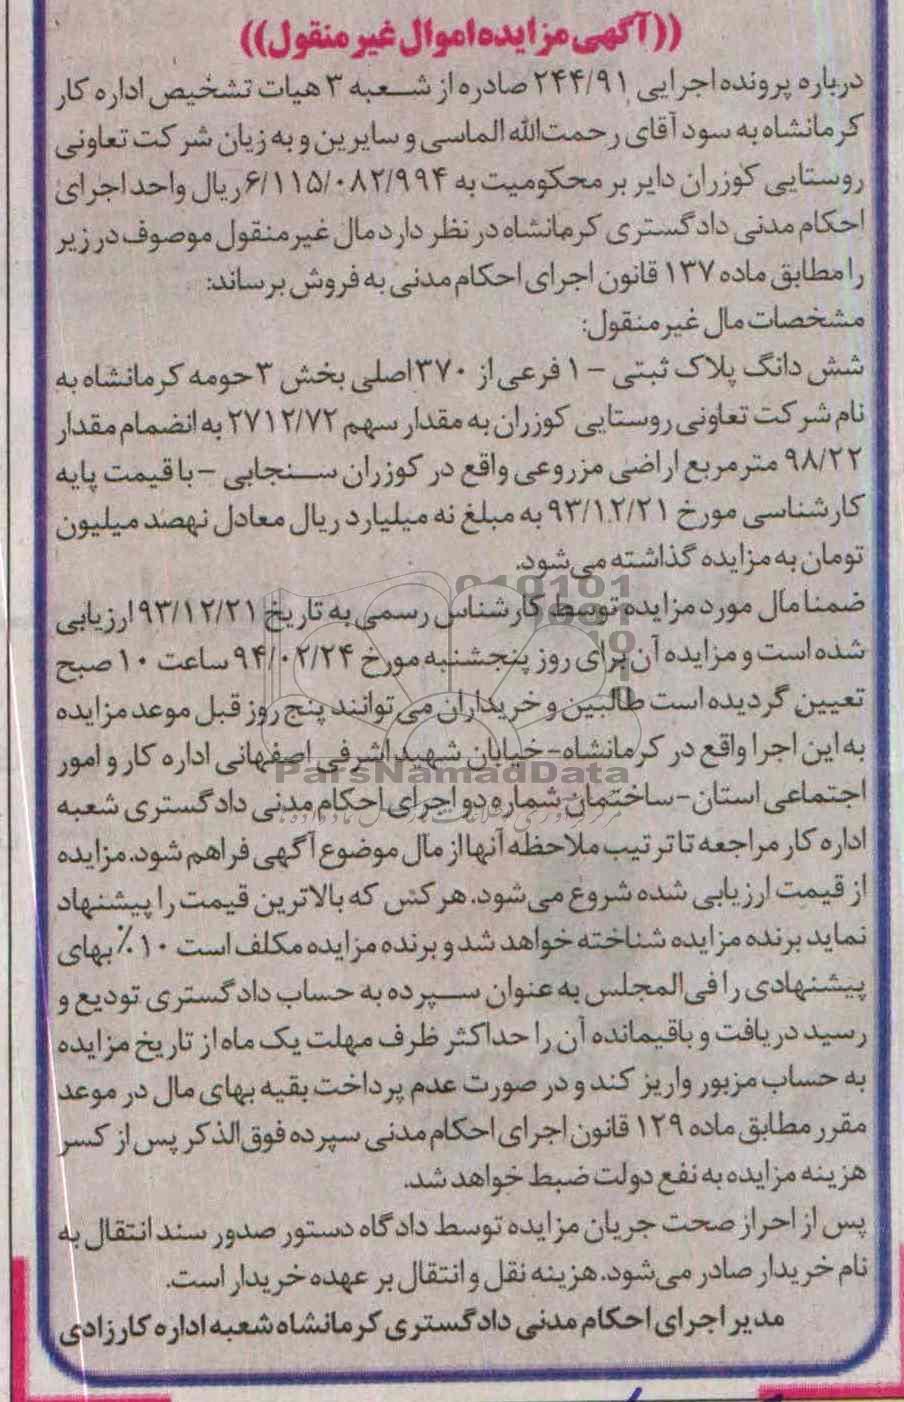 ((آگهی مزایده اموال غیر منقول))
درباره پرونده اجرایی ۲۴۴/۹۱ صادره از شعبه ۳ هیات تشخیص اداره کار
کرمانشاه به سود آقای رحمت‌الله الماسی و سایرین و به زیان شرکت تعاونی
روستایی کوزران دایر بر محکومیت به ۶/۱۱۵/۰۸۲/۹۹۴ ریال واحد اجرای
احکام مدنی دادگستری کرمانشاه در نظر دارد مال غیر منقول موصوف در زیر
را مطابق ماده ۱۳۷ قانون اجرای احکام مدنی به فروش برساند:
مشخصات مال غیر منقول:
شش دانگ پلاک ثبتی – ۱ فرعی از ۳۷۰ اصلی بخش ۳ حومه کرمانشاه به
نام شرکت تعاونی روستایی کوزران به مقدار سهم ۲۷۱۲/۷۲ به انضمام مقدار
۹۸/۲۲ متر مربع اراضی مزروعی واقع در کوزران سنجابی – با قیمت پایه
کارشناسی مورخ ۹۳/۱۲/۲۱ به مبلغ نه میلیارد ریال معادل نهصد میلیون
تومان به مزایده گذاشته می‌شود.
ضمنا مال مورد مزایده توسط کارشناس رسمی به تاریخ ۹۳/۱۲/۲۱ ارزیابی
شده است و مزایده آن برای روز پنجشنبه مورخ ۹۴/۰۲/۲۴ ساعت ۱۰ صبح
تعیین گردیده است طالبین و خریداران می توانند پنج روز قبل موعد مزایده
به این اجرا واقع در کرمانشاه-خیابان شهید اشرفی اصفهانی اداره کار و امور
ParsNamadData
اجتماعی استان-ساختمان شماره دو اجرای احکام مدنی دادگستری شعبه
اداره کار مراجعه تا ترتیب ملاحظه آنها از مال موضوع آگهی فراهم شود. مزایده
از قیمت ارزیابی شده شروع می‌شود. هر کس که بالاترین قیمت را پیشنهاد
نماید برنده مزایده شناخته خواهد شد و برنده مزایده مکلف است ۱۰٪ بهای
پیشنهادی را فی‌المجلس به عنوان سپرده به حساب دادگستری تودیع و
رسید دریافت و باقیمانده آن را حداکثر ظرف مهلت یک ماه از تاریخ مزایده
به حساب مزبور واریز کند و در صورت عدم پرداخت بقیه بهای مال در موعد
مقرر مطابق ماده ۱۲۹ قانون اجرای احکام مدنی سپرده فوق‌الذکر پس از کسر
هزینه مزایده به نفع دولت ضبط خواهد شد.
پس از احراز صحت جریان مزایده توسط دادگاه دستور صدور سند انتقال به
نام خریدار صادر می‌شود. هزینه نقل و انتقال بر عهده خریدار است.
مدیر اجرای احکام مدنی دادگستری کرمانشاه شعبه اداره کار زادی